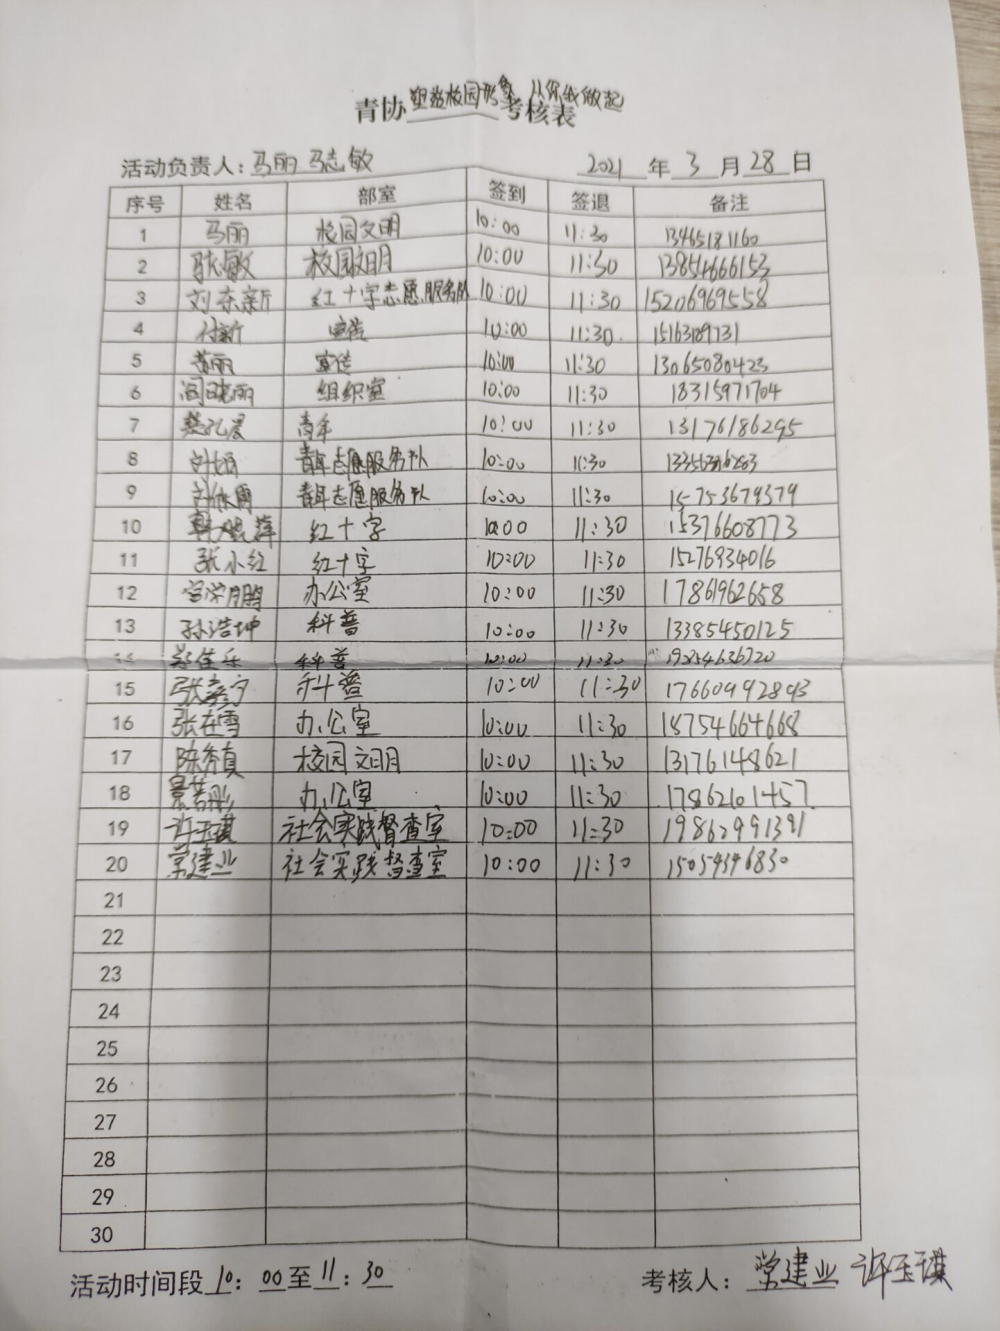 青协塑造校园形象 从你我做起考核表
活动负责人：马丽 马志敏 2021年3月28日
序号 姓名 部室 签到 签退 备注
1 马丽 校园文明 10:00 11:30 13465181160
2 校园文明 10:00 11:30 13854666153
3 刘东新 红十字志愿服务队 10:00 11:30 15206969558
4 付新 宣传 10:00 11:30 15163189731
5 苏丽 宣传 10:00 11:30 13065080423
6 闫晓丽 组织室 10:00 11:30 18315971704
7 青年 10:00 11:30 13176186295
8 青年志愿服务队 10:00 11:30
9 青年志愿服务队 10:00 11:30 15753679379
10 红十字 10:00 11:30 15376608773
11 张小红 红十字 10:00 11:30 15276934016
12 办公室 10:00 11:30 17861962658
13 孙浩坤 科普 10:00 11:30 13385450125
14 科普 10:00 11:30
15 科普 10:00 11:30 17660992893
16 张在雪 办公室 10:00 11:30 18754664668
17 陈秀真 校园文明 10:00 11:30 13176148621
18 办公室 10:00 11:30 17862101457
19 许玉琪 社会实践督查室 10:00 11:30 19862991391
20 常建业 社会实践督查室 10:00 11:30 15054346830
21
22
23
24
25
26
27
28
29
30
活动时间段 10：00至11：30 考核人：常建业 许玉琪